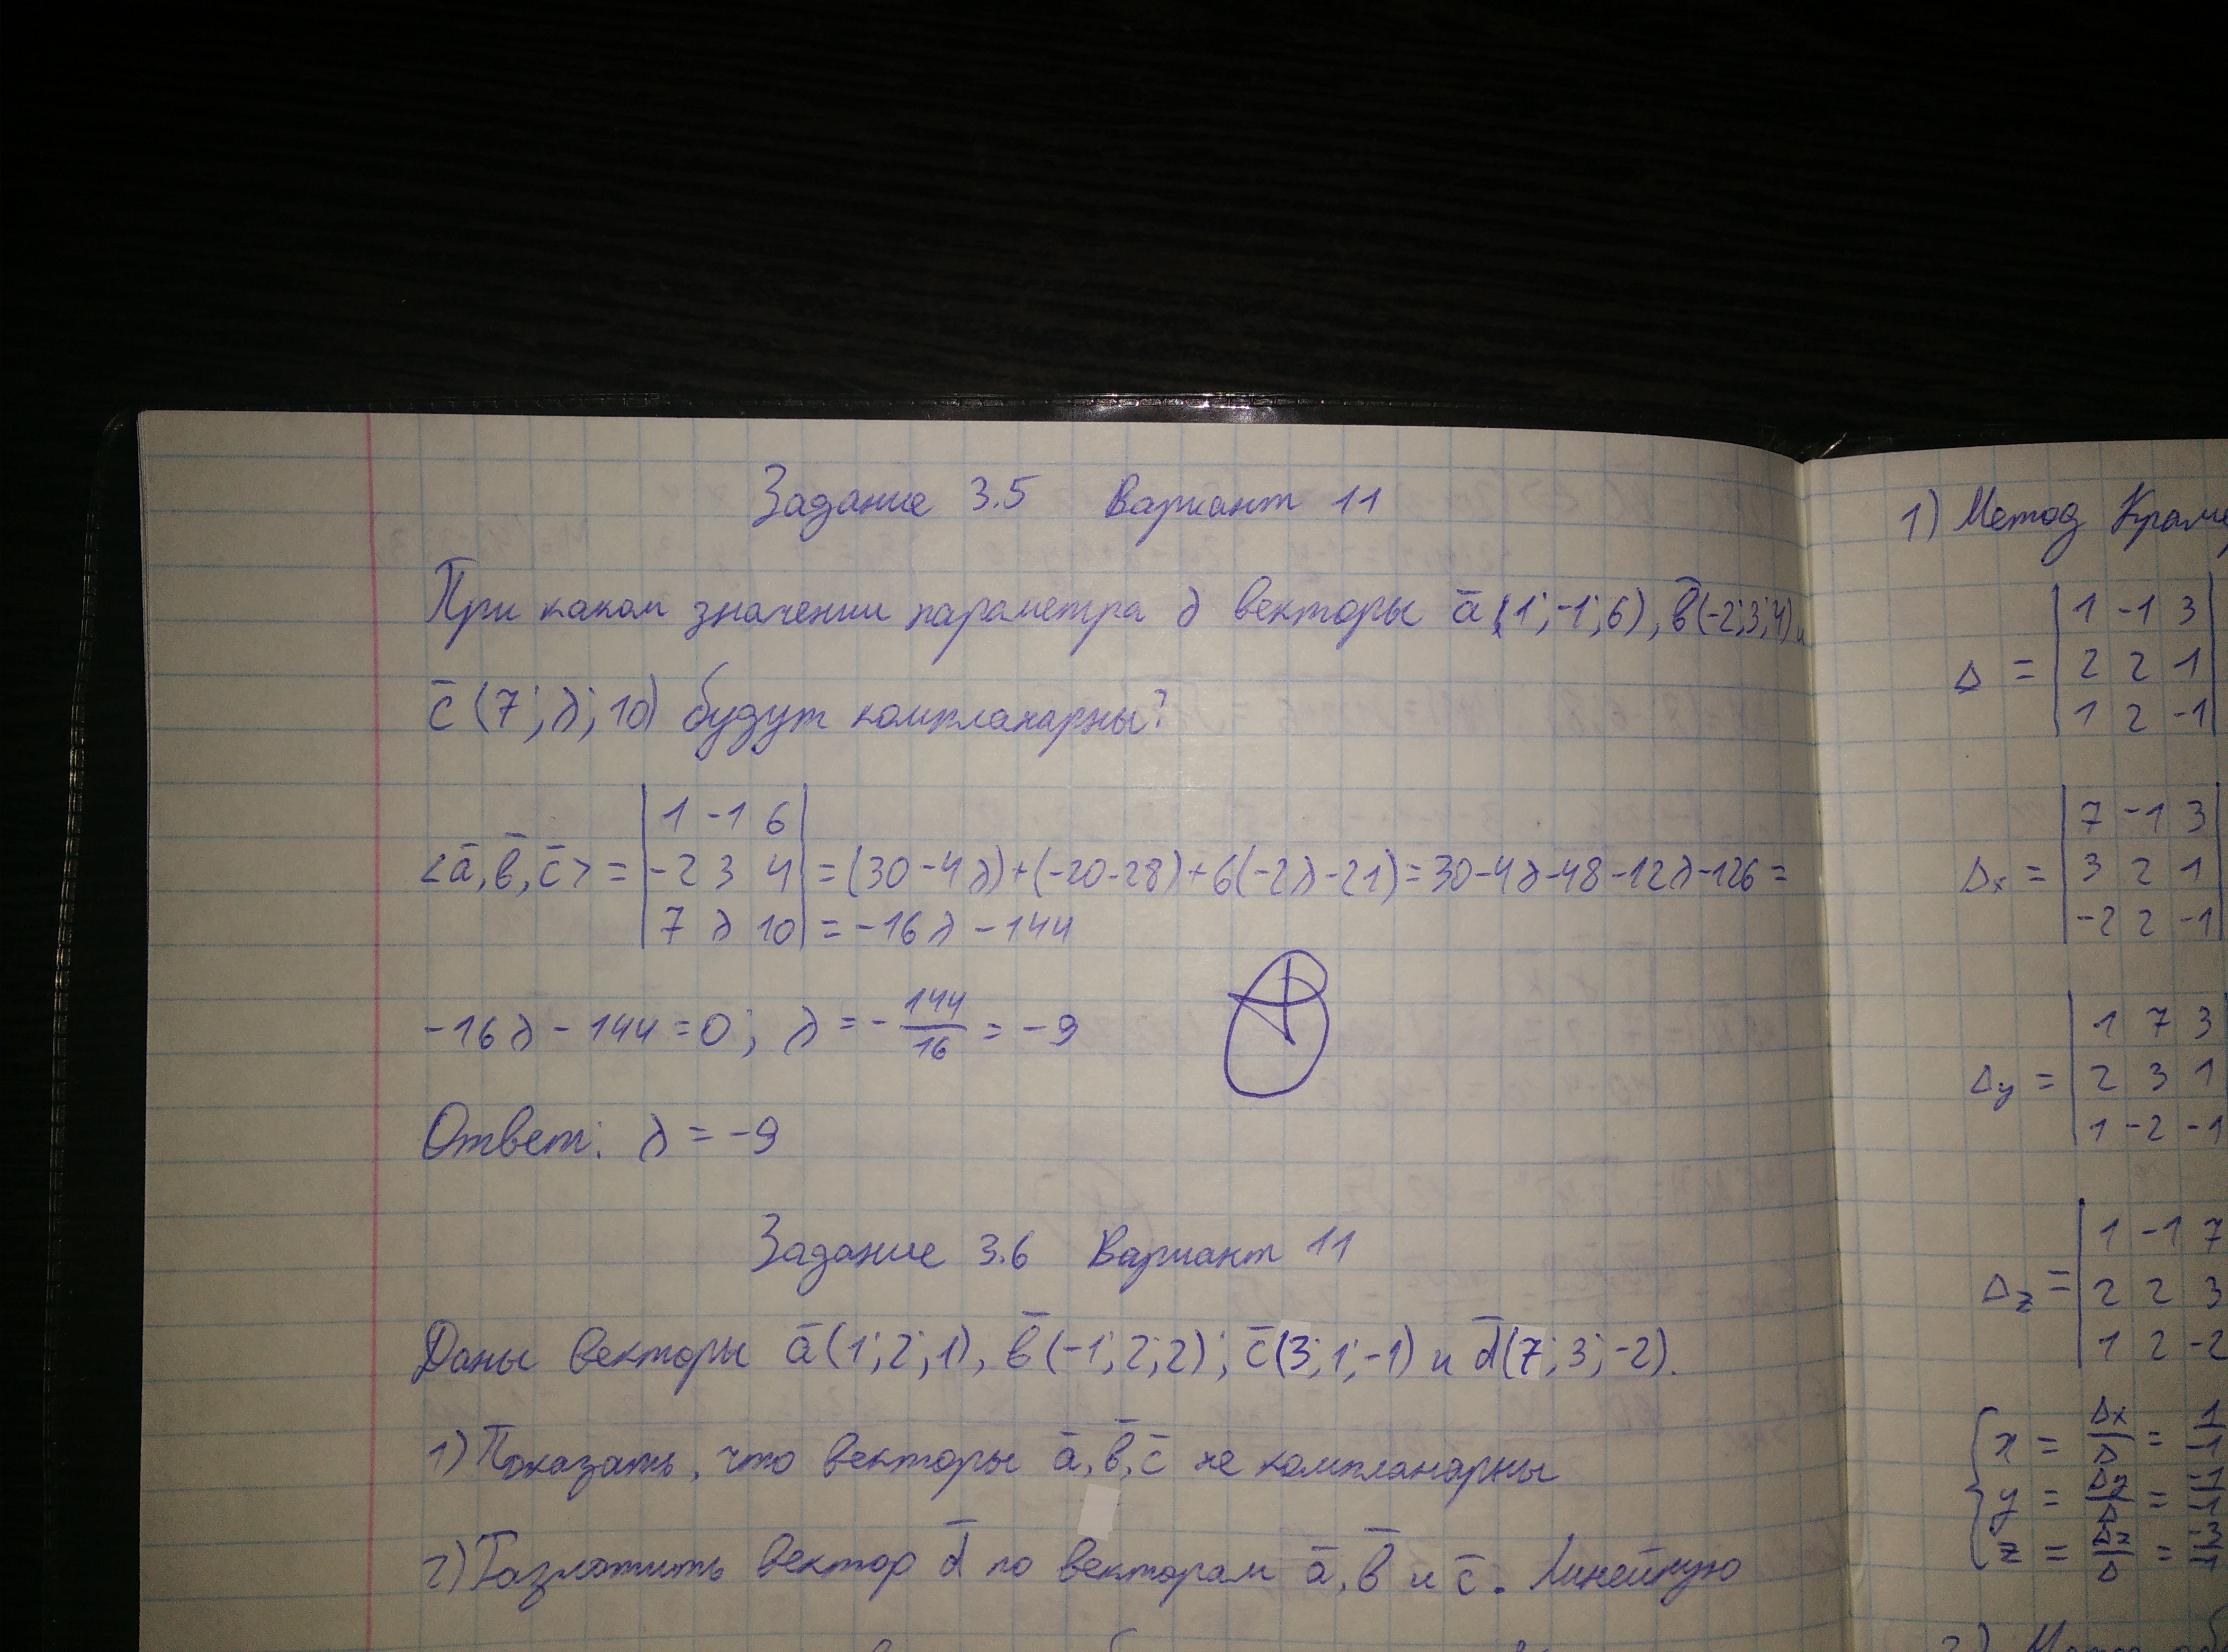 Задание 3.5 Вариант 11
При каком значении параметра λ векторы a̅(1;-1;6), b̅(-2;3;4) и
c̅(7;λ;10) будут компланарны?
<a̅,b̅,c̅> = |1 -1 6|
|-2 3 4| = (30-4λ)+(-20-28)+6(-2λ-21)=30-4λ-48-12λ-126=
|7 λ 10| = -16λ-144
-16λ-144=0; λ=-144/16=-9
Ответ: λ=-9
Задание 3.6 Вариант 11
Даны векторы a̅(1;2;1), b̅(-1;2;2); c̅(3;1;-1) и d̅(7;3;-2).
1) Показать, что векторы a̅,b̅,c̅ не компланарны
2) Разложить вектор d̅ по векторам a̅,b̅ и c̅. Линейную
1) Метод
Δ = |1 -1 3|
|2 2 1|
|1 2 -1|
Δx = |7 -1 3|
|3 2 1|
|-2 2 -1|
Δy = |1 7 3|
|2 3 1|
|1 -2 -1|
Δz = |1 -1 7|
|2 2 3|
|1 2 -2|
{x = Δx/Δ = 1/-1
y = Δy/Δ = -1/-1
z = Δz/Δ =